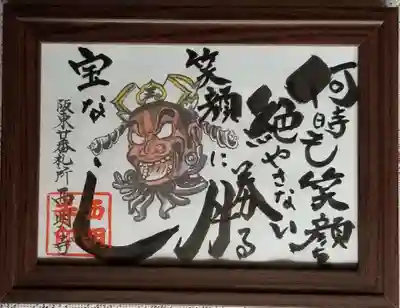 何時も笑顔を
絶やさない
笑顔に勝る
宝なし
阪東廿番札所
西明寺
西明寺印